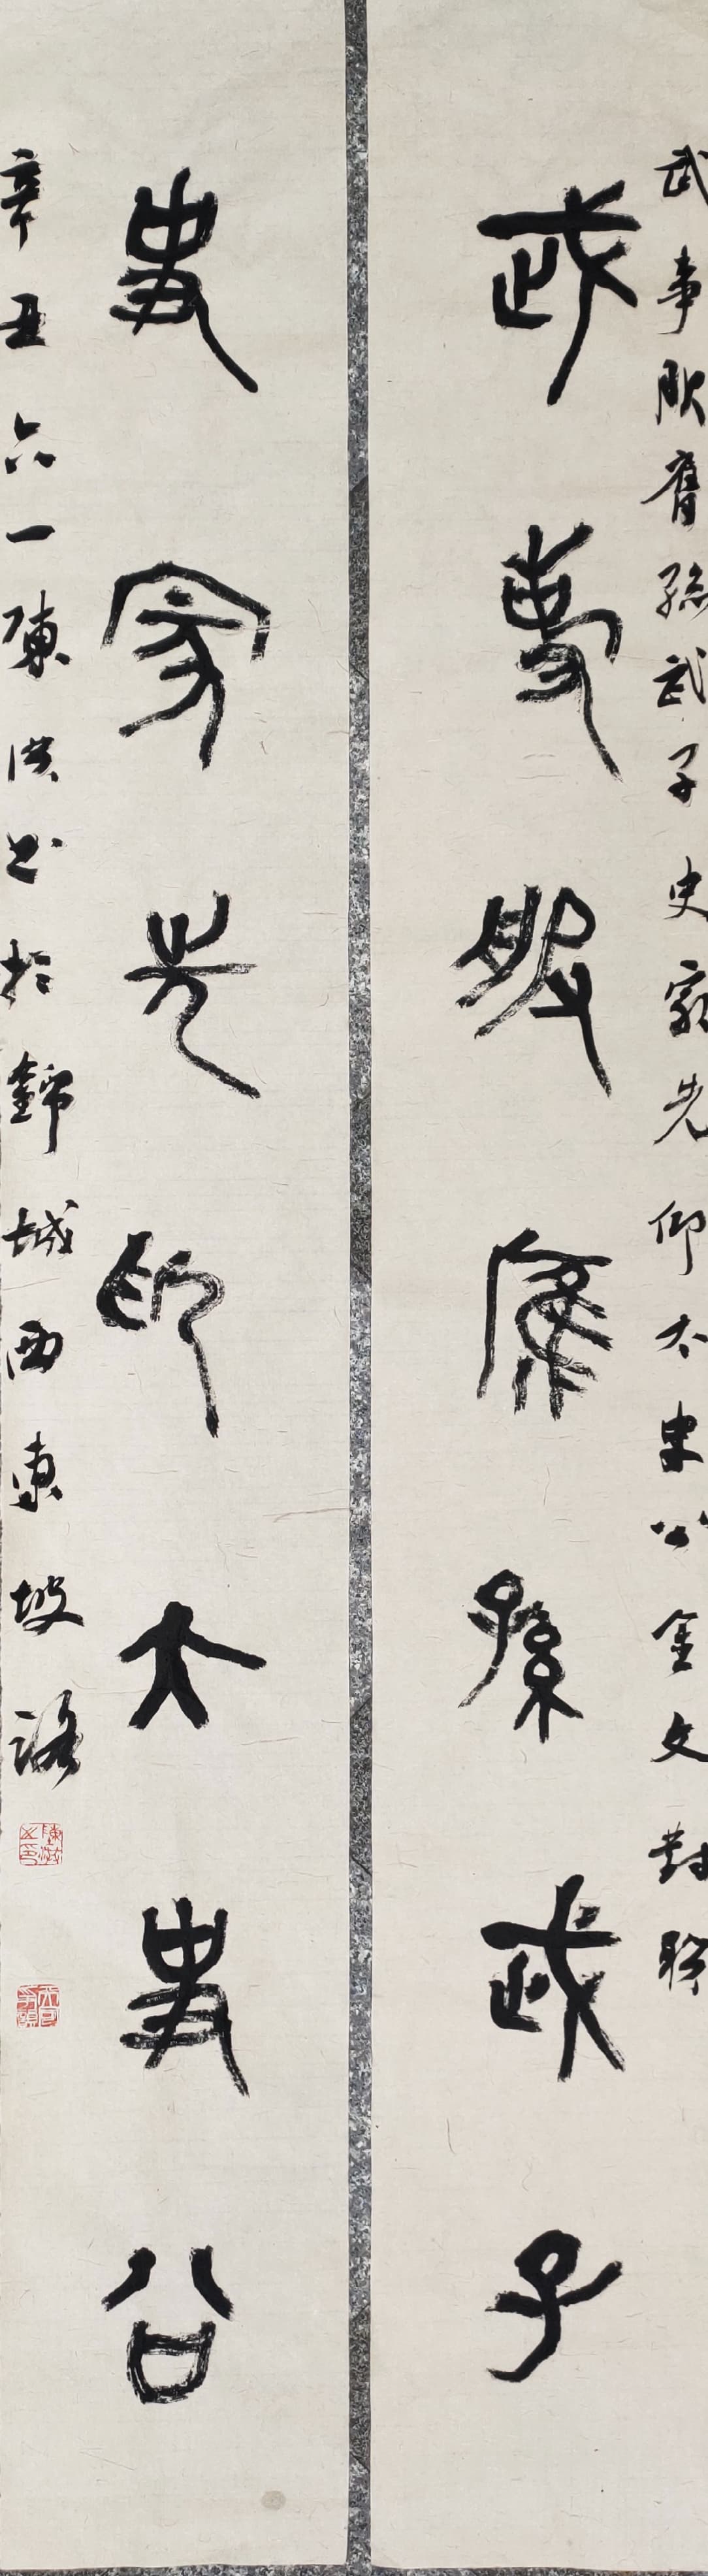 武事服膺孫武子史家先仰太史公金文對聯
武事服膺孫武子
史家先仰大史公
辛丑六一陳洪書於錦城西東坡路